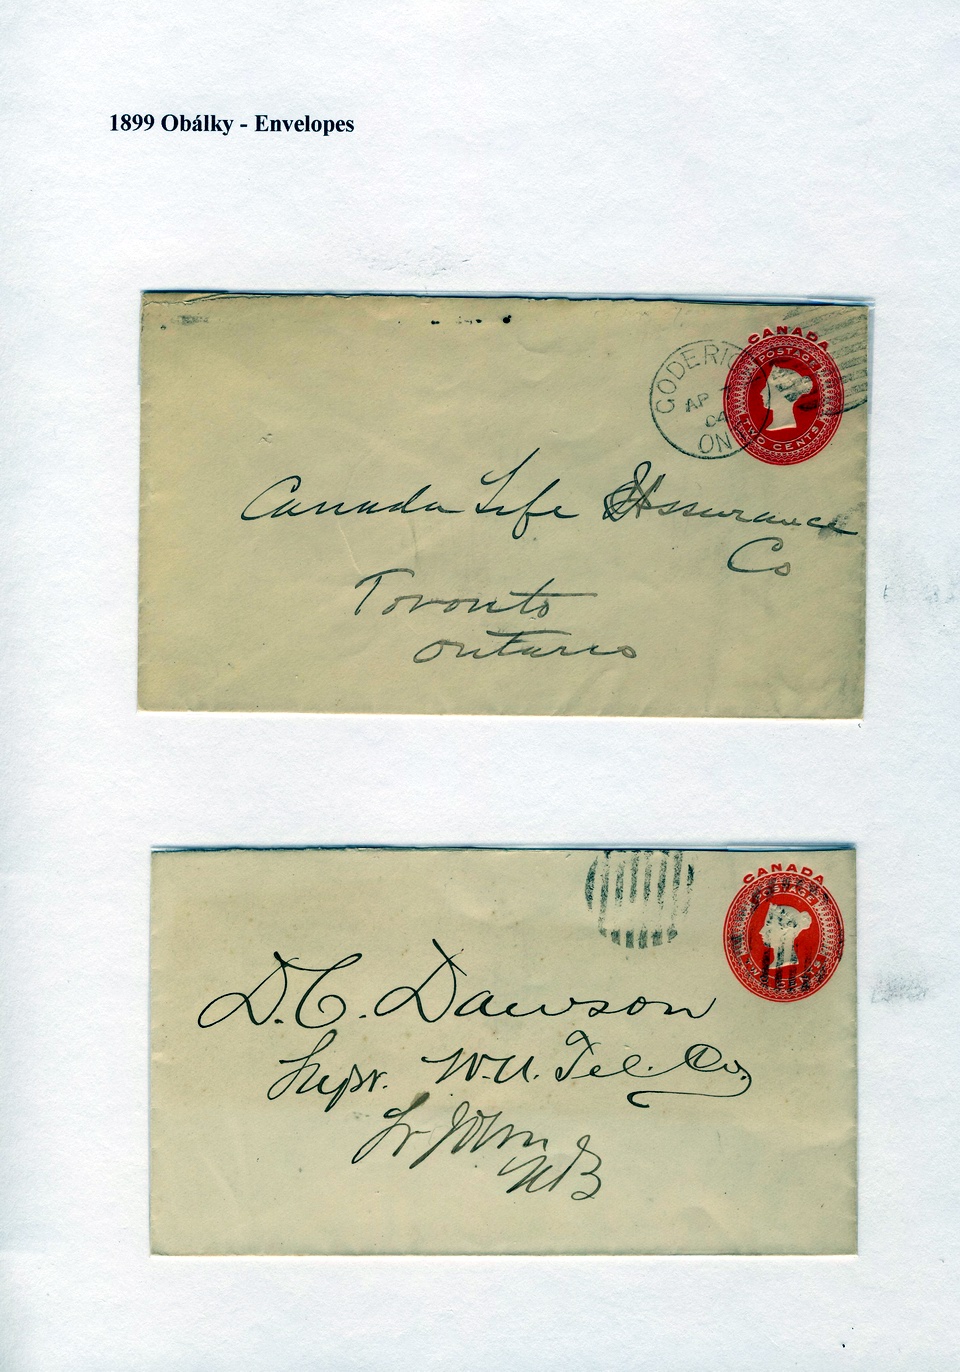 1899 Obálky - Envelopes
CANADA
POSTAGE
TWO CENTS
GODERICH
AP
04
ON
Canada Life Assurance
Co
Toronto
Ontario
CANADA
POSTAGE
TWO CENTS
D. C. Dawson
Supr. W.U. Tel. Co.
St John
NB